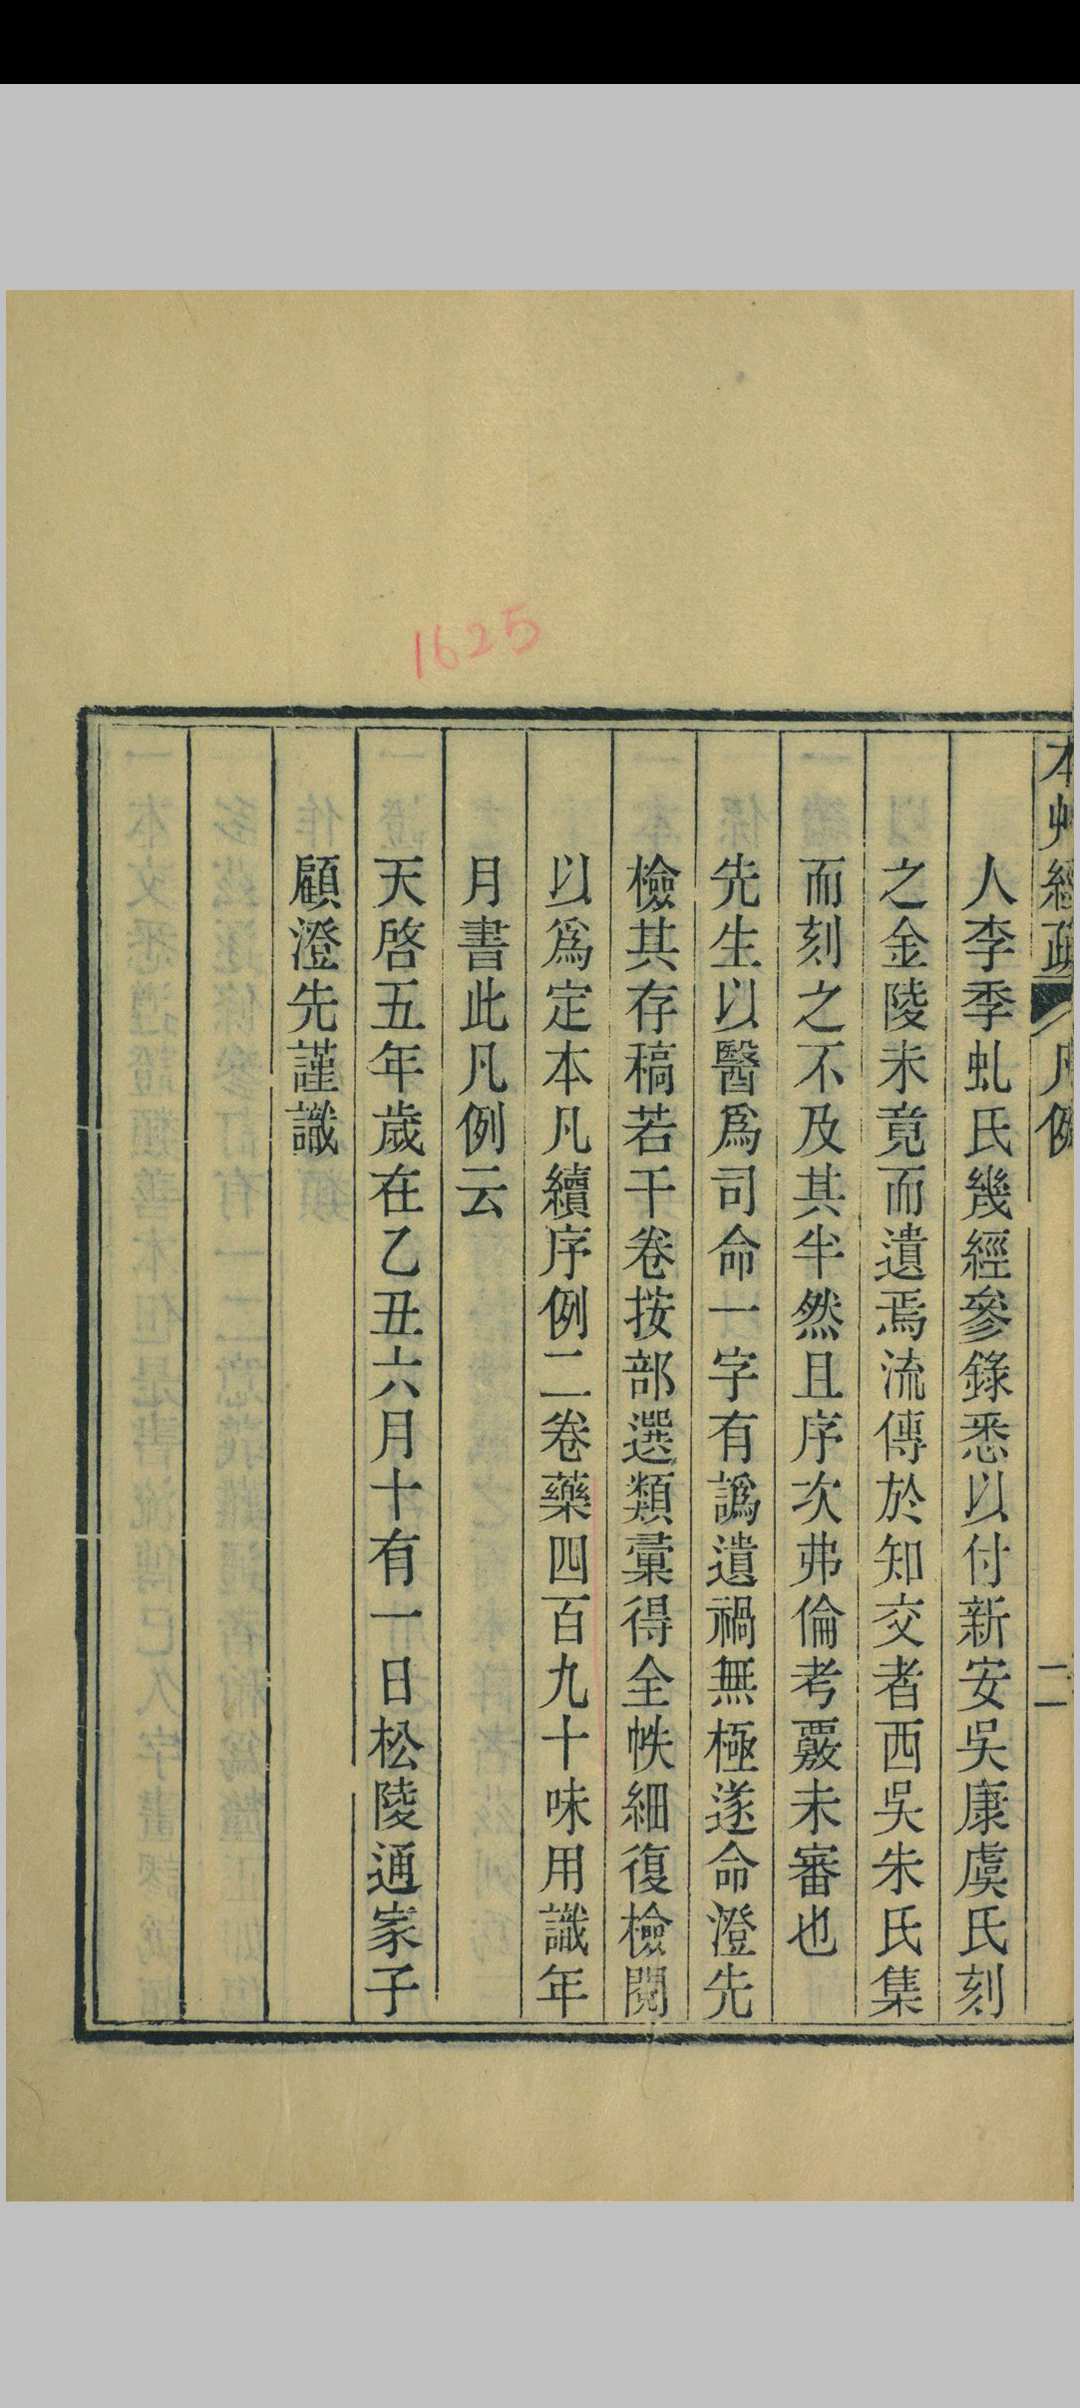 1625
本艸經疏
凡例
二
人李季虬氏幾經參錄悉以付新安吳康虞氏刻
之金陵未竟而遺焉流傳於知交者西吳朱氏集
而刻之不及其半然且序次弗倫考覈未審也
先生以醫爲司命一字有譌遺禍無極遂命澄先
檢其存稿若干卷按部選類彙得全帙細復檢閱
以爲定本凡續序例二卷藥四百九十味用識年
月書此凡例云
天啓五年歲在乙丑六月十有一日松陵通家子
顧澄先謹識